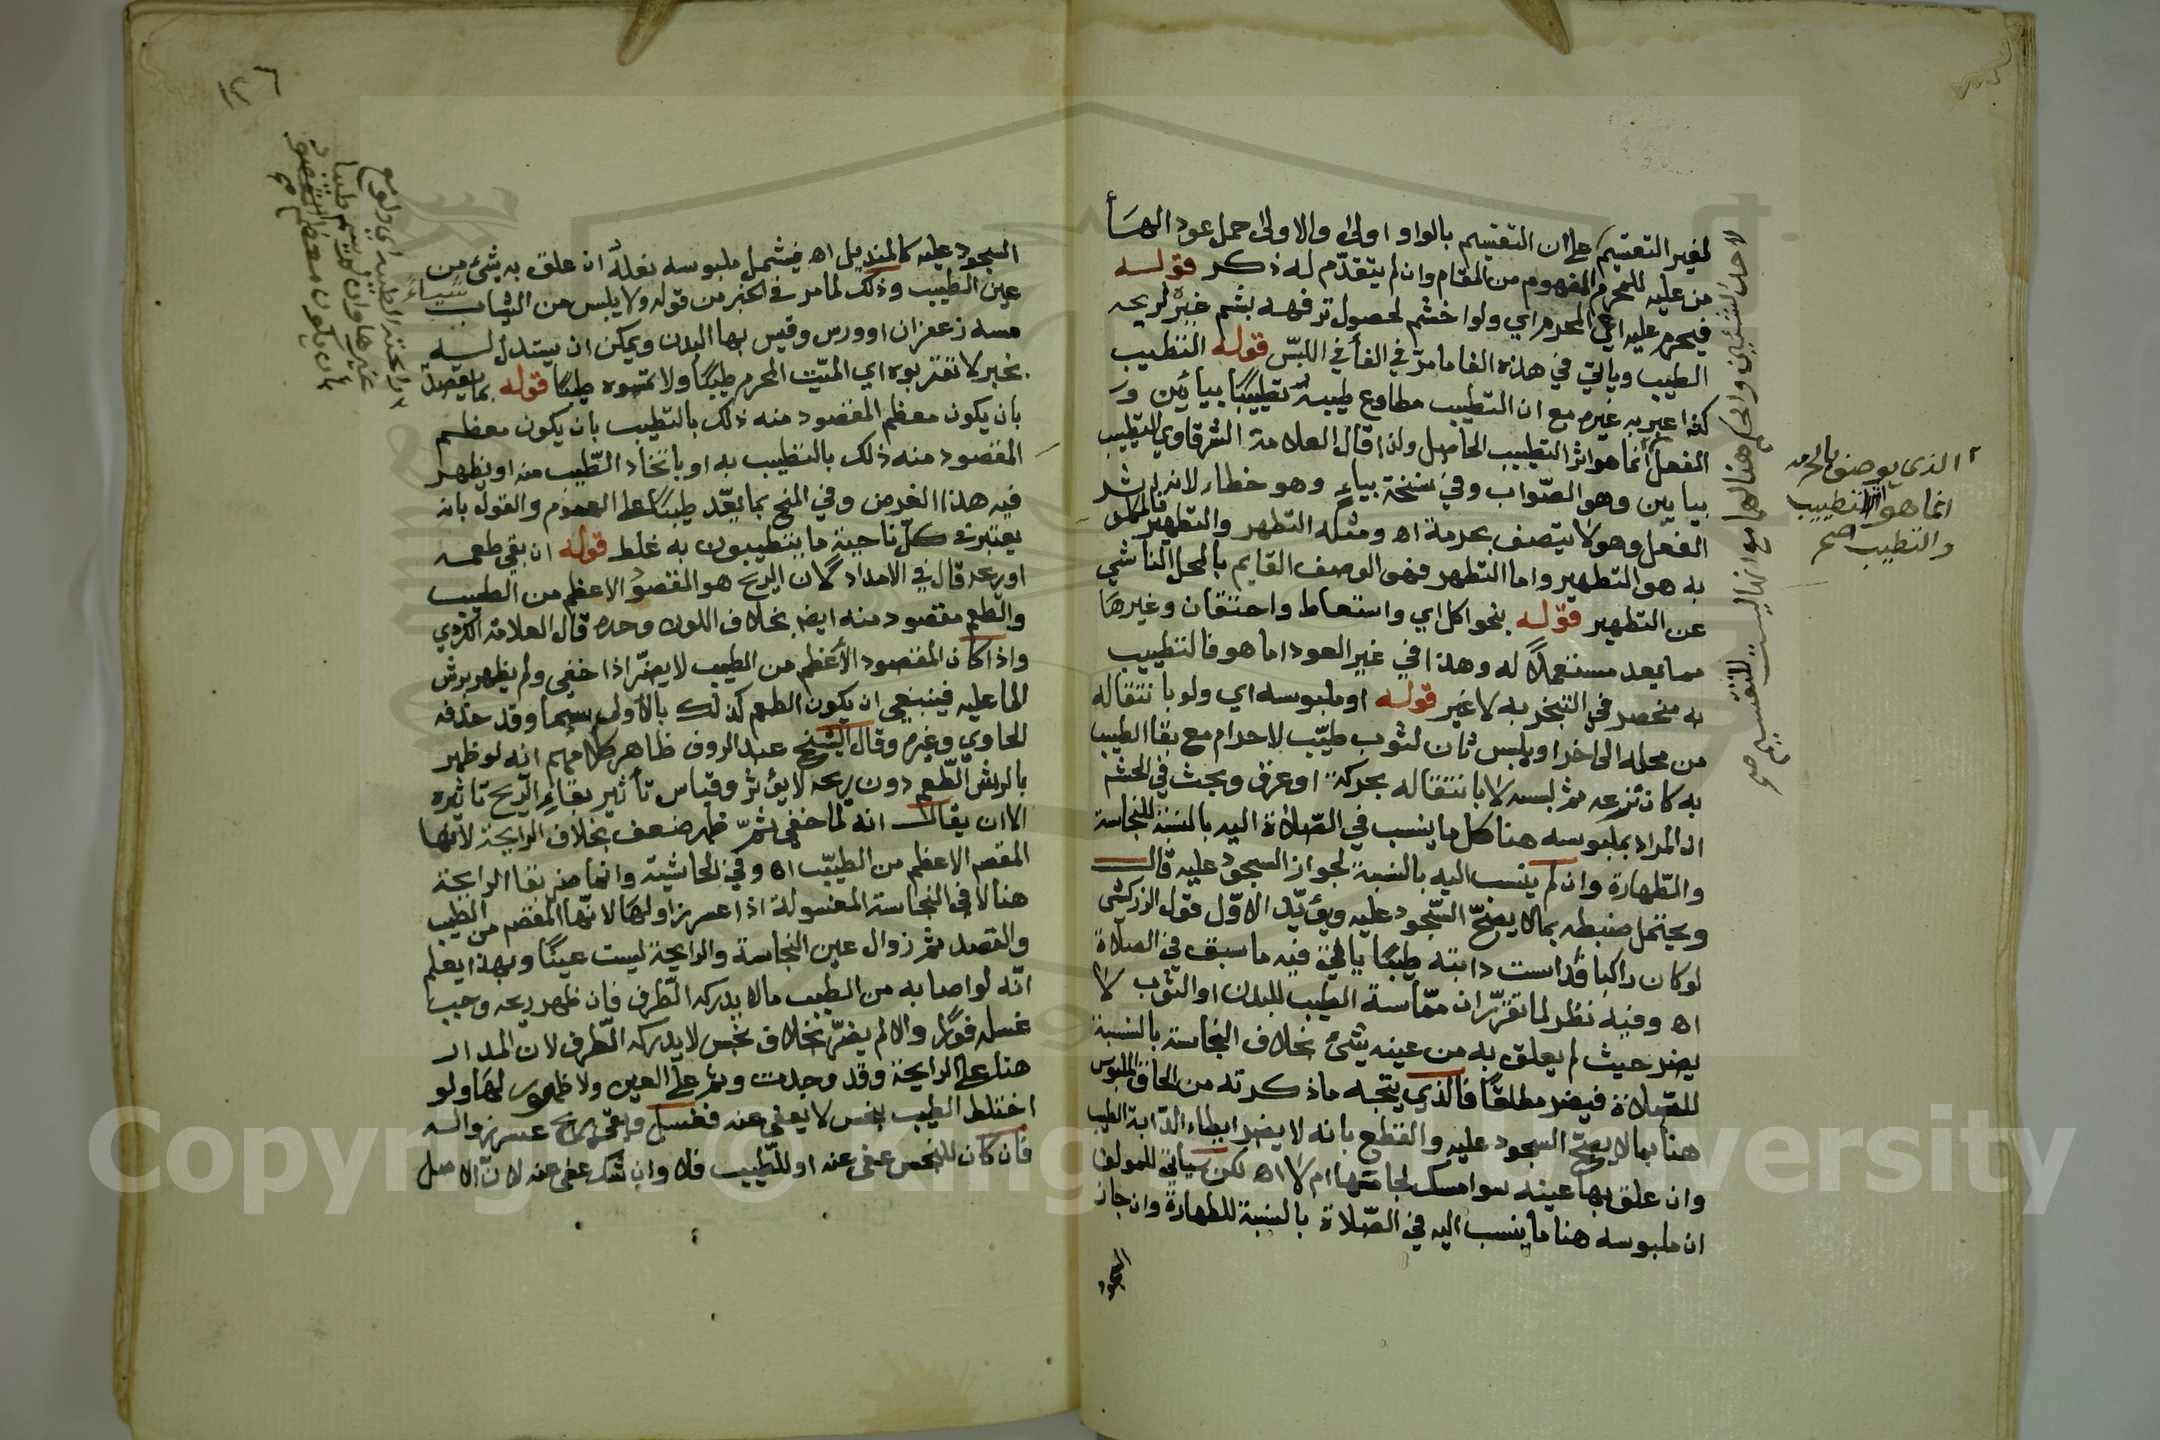 لغير التقسيم على ان التقسيم بالواو اولى والاولى حمل عود الهاء
من عليه للمحرم المفهوم من المقام وان لم يتقدّم له ذكر قوله
فيحرم عليه اي المحرم اي ولو اخشم لحصول ترفهه بشم غيره لريحه
الطيب وياتي في هذه الفا مامرّ في الفأ في اللبس قوله التطيب
كذا عبر به غيره مع ان التطيب مطاوع طيبه تطييبًا بيائين و
الفعل انما هو اثر التطييب الحاصل ولذا قال العلامة الشرقاوي التطييب
بيايين وهو الصّواب وفي نسخة بياءٍ وهو خطاء لانه اثر
الفعل وهو لا يتصف بحرمة اه ومثله التطهر والتطهير فالمكلف
به هو التطهير واما التطهر فهو الوصف القايم بالمحل الناشي
عن التطهير قوله بنحو اكل اي واستعاط واحتقان وغيرها
مما يعد مستعملاً له وهذا في غير العود اما هو فالتطييب
به منحصر في التبخر به لا غير قوله او ملبوسه اي ولو بانتقاله
من محله الى اخر او بلبس ثان لثوب طيّب لاحرام مع بقا الطيب
به كان نزعه ثم لبسه لا بانتقاله بحركة او عرق وبحث في الحشم
ان المراد بملبوسه هنا كل ما ينسب في الصّلاة اليه بالنسبة للنجاسة
والطّهارة وان لم ينسب اليه بالنسبة لجواز السجود عليه قال
ويحتمل ضبطه بما لا يصحّ السّجود عليه ويؤيّد الاوّل قول الزركشي
لو كان راكبا فداست دابته طيبًا ياتي فيه ما سبق في الصلاة
اه وفيه نظر لما تقرّر ان ممّاسة الطيب للبدن او الثوب لا
يضر حيث لم يعلق به من عينه شيئ بخلاف النجاسة بالنسبة
للصّلاة فيضر مطلقًا فالذي يتجه ما ذكرته من الحاق الملبوس
هنا بما لا يصحّ السجود عليه والقطع بانه لا يضر ايطاء الدّابة الطيب
وان علق بها عينه سوا مسك لجامها ام لا اه لكن سياتي للمولف
ان ملبوسه هنا ما ينسب اليه في الصّلاة بالنسبة للطهارة وان جاز
السجود
الذي يوصف بالحرمة
انما هو التطييب
والتطيب صح
١٢٦
السجود عليه كالمنديل اه فيشمل ملبوسه نعله ان علق به شيئ من
عين الطيب وذلك لما مر في الخبر من قوله ولا يلبس من الثياب شياء
مسه زعفران او ورس وقيس بها البدن ويمكن ان يستدل له
بخبر لا تقربوه اي الميّت المحرم طيبًا ولا تمسوه طيبًا قوله بما يقصد
بان يكون معظم المقصود منه ذلك بالتطيب بان يكون معظم
المقصود منه ذلك بالتطيب به او باتخاذ الطّيب منه او يظهر
فيه هذا الغرض وفي المنح بما يعّد طيبًا على العموم والقول بانه
يعتبر في كلّ ناحية ما يتطيبون به غلط قوله ان بقي طعمه
او ريحه قال في الامداد لان الريح هو المقصود الاعظم من الطيب
والطعم مقصود منه ايضا بخلاف اللون وحده قال العلامة الكردي
واذا كان المقصود الأعظم من الطيب لا يضرّ اذا خفي ولم يظهر برش
الما عليه فينبغي ان يكون الطعم كذلك بالأولى سيما وقد حذفه
الحاوي وغيره وقال الشيخ عبد الروف ظاهر كلامهم انه لو ظهر
بالرش الطّعم دون ريحه لا يؤثر وقياس تأثير بقاءِ الرّيح تاثيره
الا ان يقال انه لما خفي ثمّ ظهر ضعف بخلاف الرايحة لانها
المقصم الاعظم من الطيّب اه وفي الحاشية وانما ضر بقا الرايحة
هنا لا في النجاسة المغسولة اذا عسر زوالها لانها المقصم من الطيب
والقصد ثم زوال عين النجاسة والرايحة ليست عينًا وبهذا يعلم
انّه لو اصابه من الطيب ما لا يدركه الطّرف فان ظهر ريحه وجب
غسله فورًا والا لم يضرّ بخلاف نجس لا يدركه الطّرف لان المدار
هنا على الرايحة وقد وجدت وثم على العين ولا ظهور لها ولو
اختلط الطيب بنجس لا يعفى عنه فغسل وبقي ريح عسر زواله
فان كان للنجس عفى عنه او للطّيب فلا وان شك عفى عنه لان الاصل